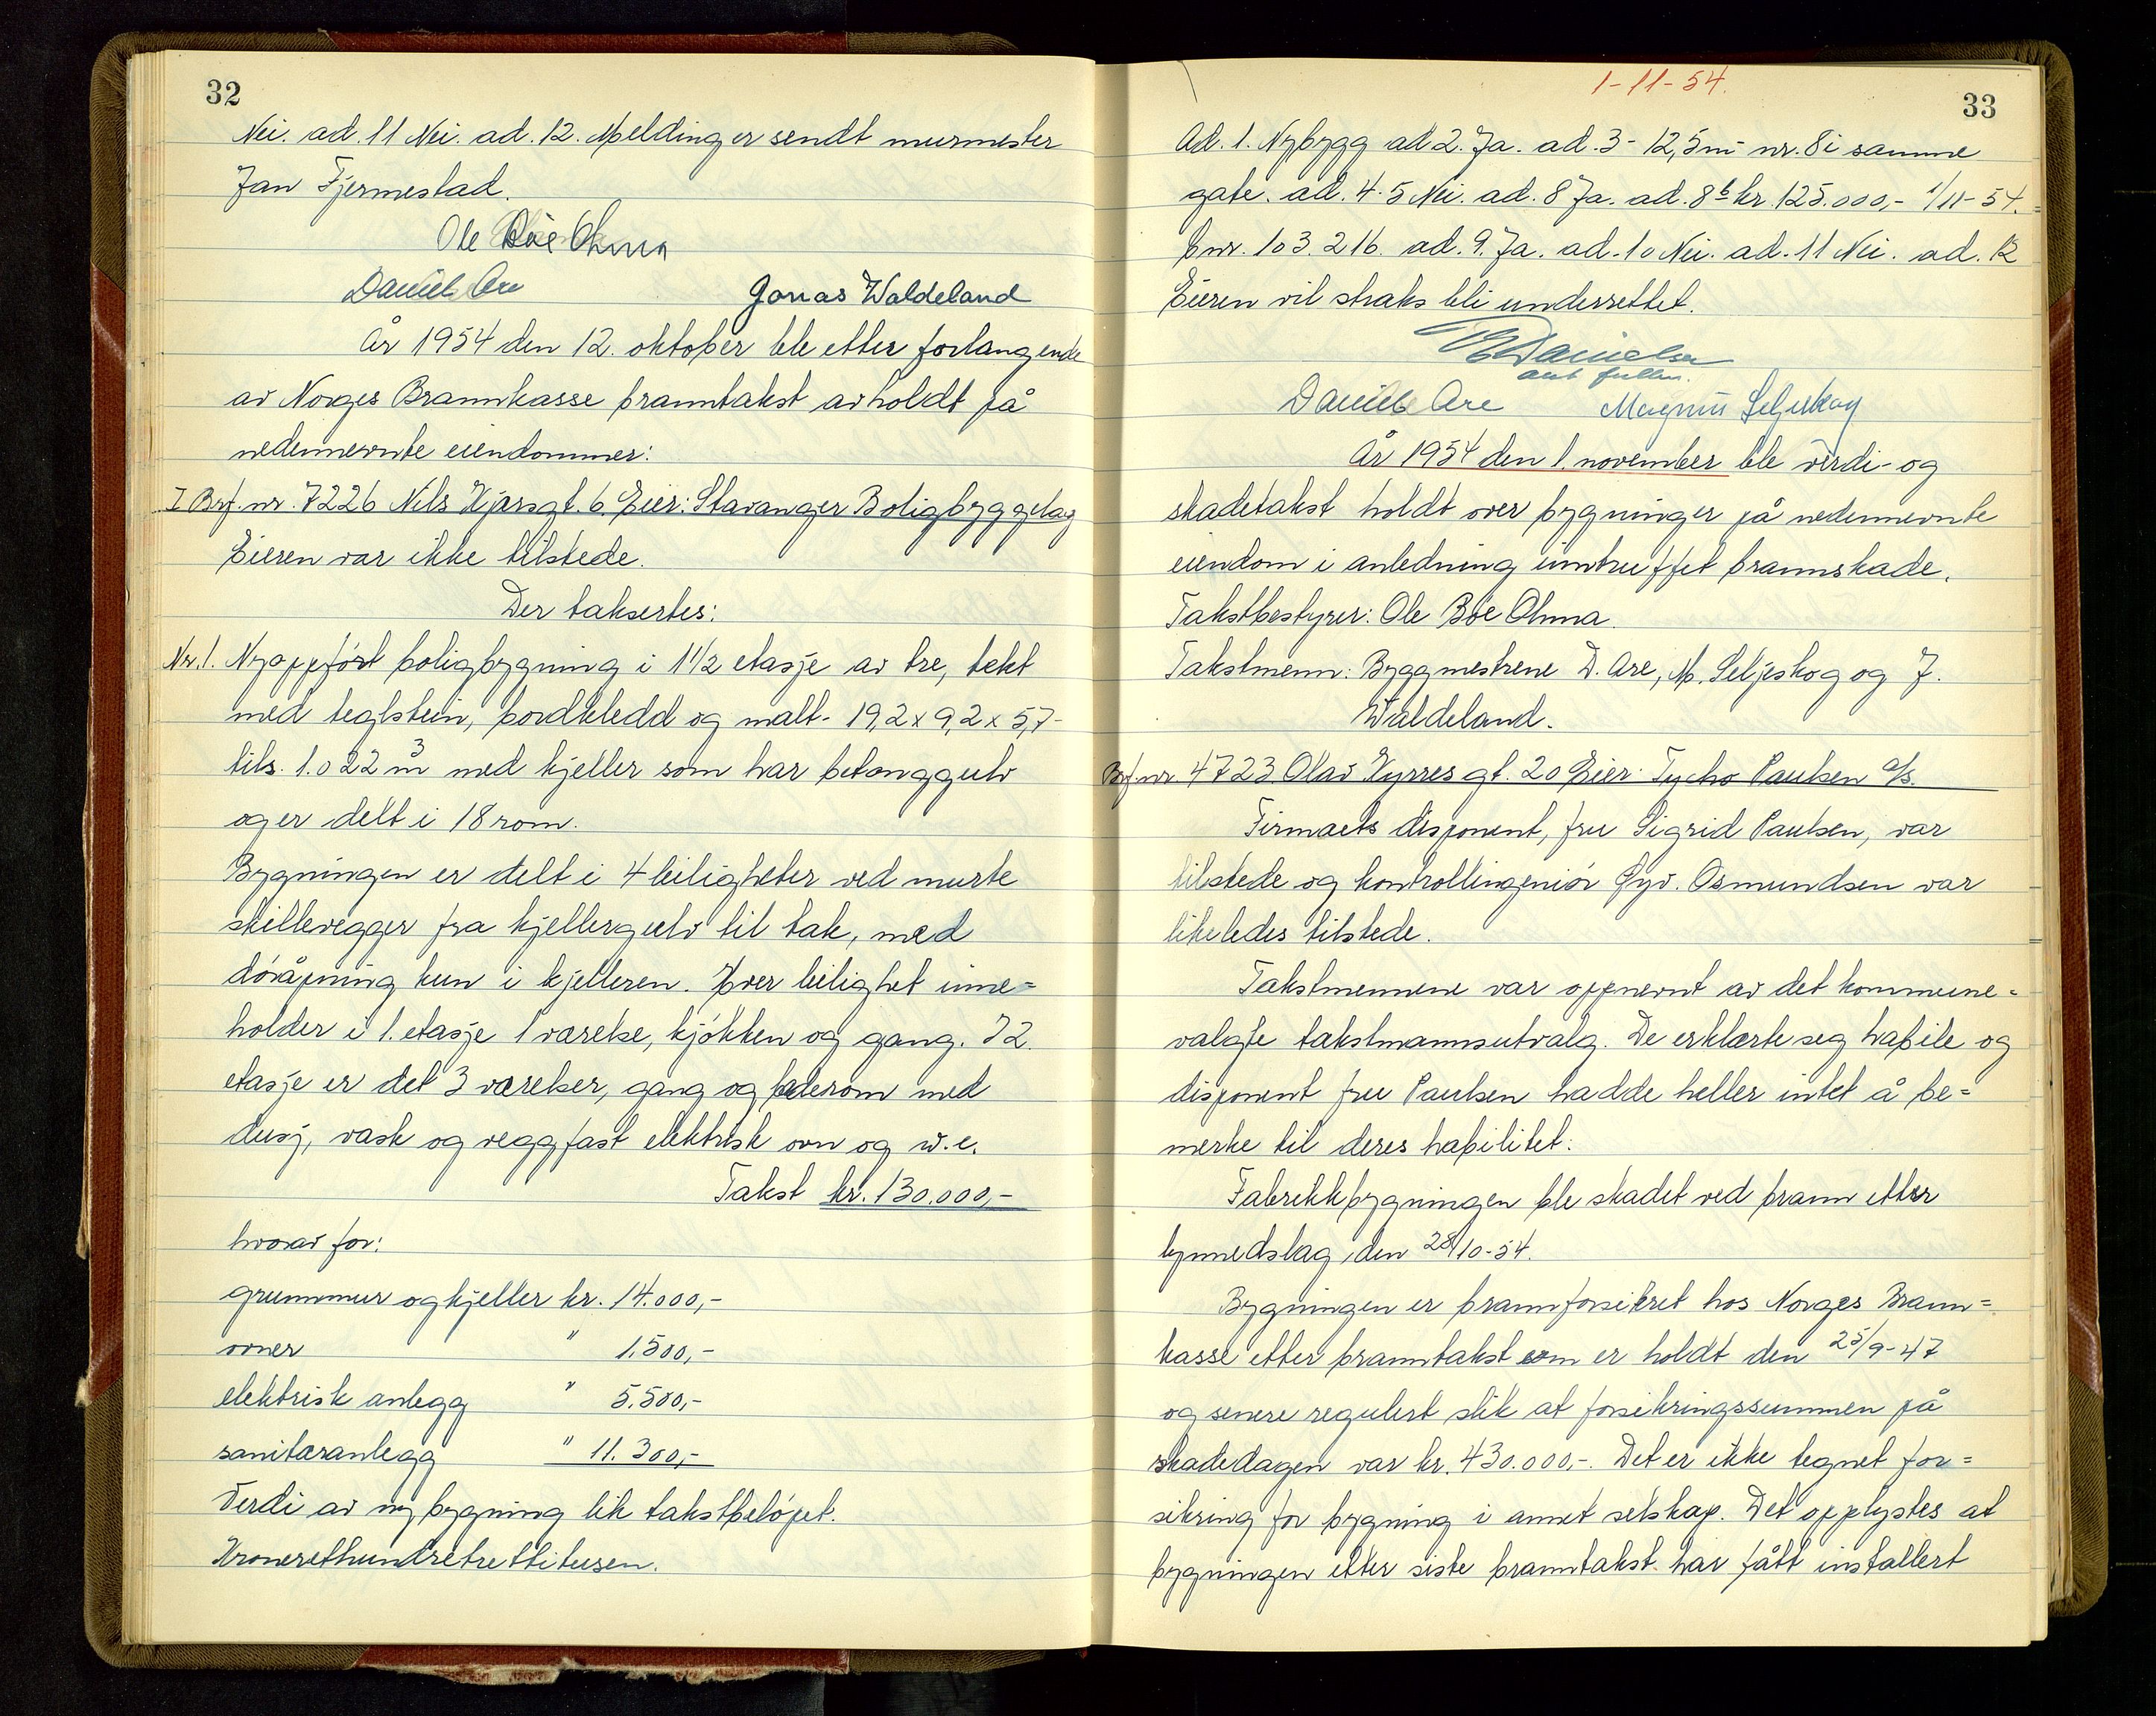 32
Nei. ad. 11 Nei. ad. 12. Melding er sendt murmester
Jan Fjermestad.
Ole Bøe Ohma
Daniel Are Jonas Waldeland
År 1954 den 12. oktober ble etter forlangende
av Norges Brannkasse branntakst avholdt på
nedennevnte eiendommer:
I Brf. nr. 7226 Nils Kjærsgt. 6. Eier: Stavanger Boligbyggelag
Eieren var ikke tilstede.
Der taksertes:
Nr. 1. Nyoppført boligbygning i 1 1/2 etasje av tre, tekt
med teglstein, bordkledd og malt - 19,2 x 9,2 x 5,7 -
tils. 1.022 m3 med kjeller som har betonggulv
og er delt i 18 rom.
Bygningen er delt i 4 leiligheter ved murte
skillevegger fra kjellergulv til tak, med
døråpning kun i kjelleren. Hver leilighet inne=
holder i 1. etasje 1 værelse, kjøkken og gang. I 2.
etasje er det 3 værelser, gang og baderom med
dusj, vask og veggfast elektrisk ovn og w.c.
Takst kr. 130.000,-
hvorav for:
grunnmur og kjeller kr. 14.000,-
ovner " 1.500,-
elektrisk anlegg " 5.500,-
sanitæranlegg " 11.300,-
Verdi av ny bygning lik takstbeløpet.
Kronerethundretrettitusen.
1-11-54.
33
Ad. 1. Nybygg ad 2. Ja. ad. 3 - 12,5 m - nr. 8 i samme
gate. ad. 4. 5 Nei. ad. 8 Ja. ad. 8b kr. 125.000,- 1/11-54.
bnr. 103.216. ad. 9. Ja. ad. 10 Nei. ad. 11 Nei. ad. 12
Eieren vil straks bli underrettet.
Danielsen
Daniel Are Magnus Seljeskog
År 1954 den 1. november ble verdi- og
skadetakst holdt over bygninger på nedennevnte
eiendom i anledning inntruffet brannskade.
Takstbestyrer: Ole Bøe Ohma.
Takstmenn: Byggmestrene D. Are, M. Seljeskog og J.
Waldeland.
Brf. nr. 4723 Olav Kyrres gt. 20 Eier: Tycho Paulsen A/S.
Firmaets disponent, fru Sigrid Paulsen, var
tilstede og kontrollingeniør Øyv. Osmundsen var
likeledes tilstede.
Takstmennene var oppnevnt av det kommune=
valgte takstmannsutvalg. De erklærte seg habile og
disponent fru Paulsen hadde heller intet å be=
merke til deres habilitet.
Fabrikkbygningen ble skadet ved brann etter
lynnedslag den 28/10-54.
Bygningen er brannforsikret hos Norges Brann=
kasse etter branntakst som er holdt den 25/9-47
og senere regulert slik at forsikringssummen på
skadedagen var kr. 430.000,-. Det er ikke tegnet for=
sikring for bygning i annet selskap. Det opplystes at
bygningen etter siste branntakst har fått installert